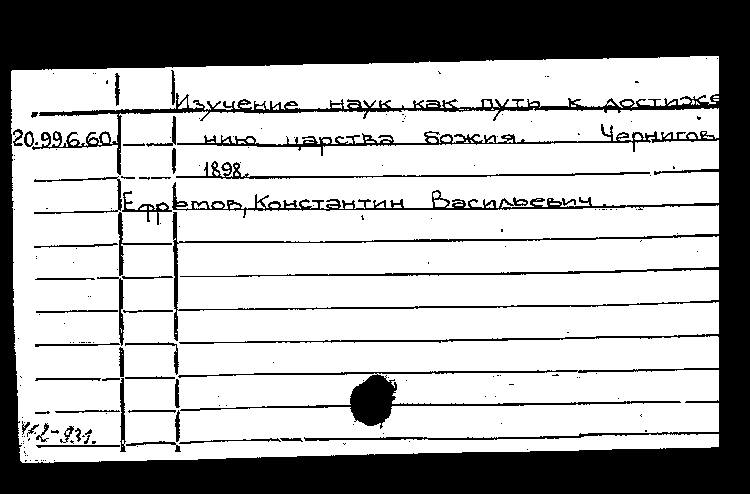 Изучение наук, как путь к достиже
20.99.6.60. нию царства божия. Чернигов
1898.
Ефремов, Константин Васильевич.